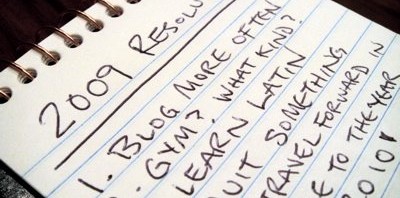 2009 RESOLU
1. BLOG MORE OFTEN
. GYM? WHAT KIND?
LEARN LATIN
UIT SOMETHING
TRAVEL FORWARD IN
E TO THE YEAR
2010!